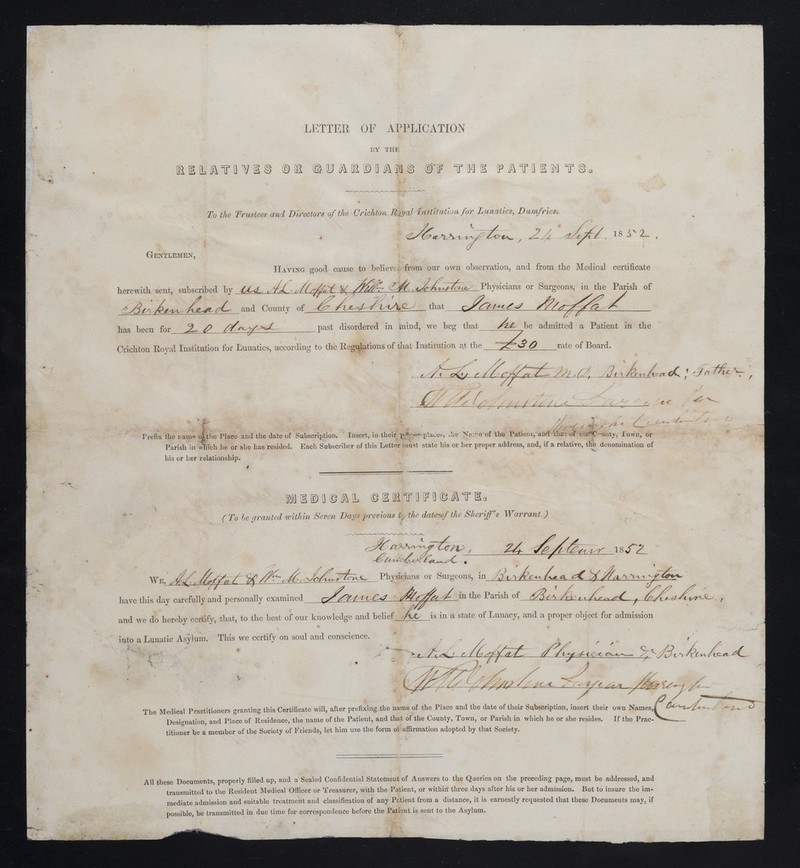 LETTER OF APPLICATION
BY THE
RELATIVES OR GUARDIANS OF THE PATIENTS.
To the Trustees and Directors of the Crichton Royal Institution for Lunatics, Dumfries.
Harrington, 24 Sept. 1852.
GENTLEMEN,
HAVING good cause to believe from our own observation, and from the Medical certificate
herewith sent, subscribed by us A L Moffat & Wm M. Johnstone Physicians or Surgeons, in the Parish of
Birkenhead and County of Cheshire that James Moffat
has been for 20 days past disordered in mind, we beg that he be admitted a Patient in the
Crichton Royal Institution for Lunatics, according to the Regulations of that Institution at the £30 rate of Board.
A. L. Moffat M.D. Birkenhead; Father,
W M Johnstone Surgeon
Prefix the name of the Place and the date of Subscription. Insert, in their proper places, the Name of the Patient, and that of the County, Town, or
Parish in which he or she has resided. Each Subscriber of this Letter must state his or her proper address, and, if a relative, the denomination of
his or her relationship.
MEDICAL CERTIFICATE.
(To be granted within Seven Days previous to the date of the Sheriff's Warrant.)
Harrington, 24 September 1852
Cumberland.
WE, A L Moffat & Wm M. Johnstone Physicians or Surgeons, in Birkenhead & Harrington
have this day carefully and personally examined James Moffat in the Parish of Birkenhead, Cheshire,
and we do hereby certify, that, to the best of our knowledge and belief he is in a state of Lunacy, and a proper object for admission
into a Lunatic Asylum. This we certify on soul and conscience.
A. L. Moffat Physician Birkenhead
W M Johnstone Surgeon Harrington
Cumberland
The Medical Practitioners granting this Certificate will, after prefixing the name of the Place and the date of their Subscription, insert their own Names,
Designation, and Place of Residence, the name of the Patient, and that of the County, Town, or Parish in which he or she resides. If the Prac-
titioner be a member of the Society of Friends, let him use the form of affirmation adopted by that Society.
All these Documents, properly filled up, and a Sealed Confidential Statement of Answers to the Queries on the preceding page, must be addressed, and
transmitted to the Resident Medical Officer or Treasurer, with the Patient, or within three days after his or her admission. But to insure the im-
mediate admission and suitable treatment and classification of any Patient from a distance, it is earnestly requested that these Documents may, if
possible, be transmitted in due time for correspondence before the Patient is sent to the Asylum.